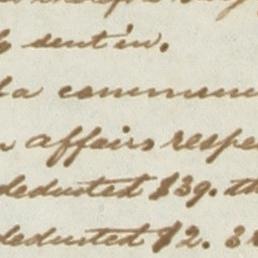 sent in.
a commun
affairs respe
deducted $39. th
deducted $2. 3